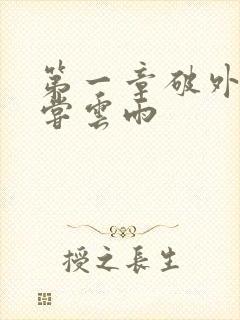 第一章破外
嘗雲雨
授之長生